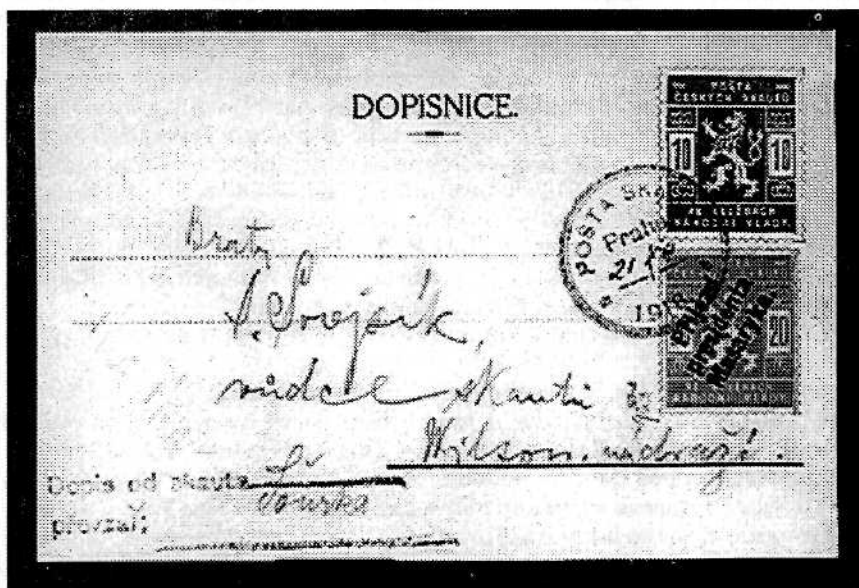 DOPISNICE.
POŠTA
ČESKÝCH SKAUTŮ
10 10
VE SLUŽBÁCH
NÁRODNÍ VLÁDY
POŠTA SKA
Praha
21
191
Příjezd
Presidenta
Masaryka.
20
NÁRODNÍ VLÁDY
Bratr
Svojsík,
vůdce skautů
Wilson. nádraží.
Dopis od skauta
převzal: